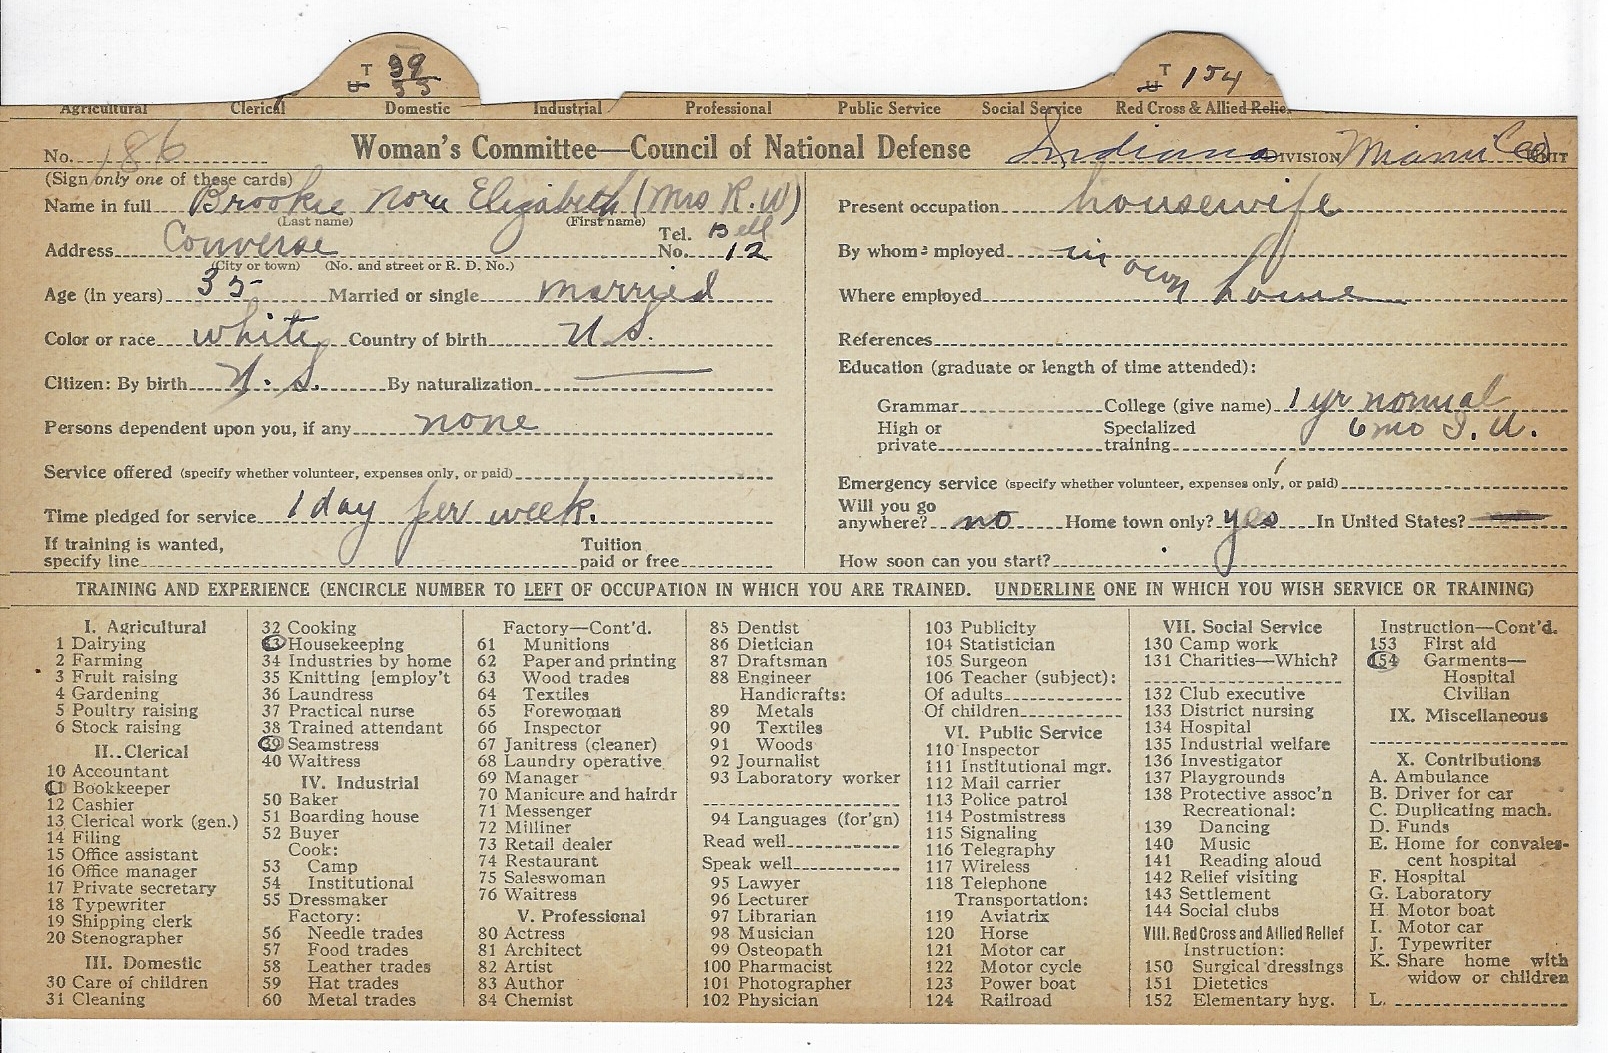 T 39
U 55
T 154
U
Agricultural Clerical Domestic Industrial Professional Public Service Social Service Red Cross & Allied Relief
No. 186 Woman's Committee—Council of National Defense Indiana DIVISION Miami Co UNIT
(Sign only one of these cards)
Name in full Brookie Nora Elizabeth (Mrs R.W)
(Last name) (First name)
Address Converse Tel. No. Bell 12
(City or town) (No. and street or R. D. No.)
Age (in years) 35 Married or single married
Color or race white Country of birth U.S.
Citizen: By birth U.S. By naturalization ——
Persons dependent upon you, if any none
Service offered (specify whether volunteer, expenses only, or paid)
Time pledged for service 1 day per week.
If training is wanted, specify line Tuition paid or free
Present occupation housewife
By whom employed in own
Where employed home
References
Education (graduate or length of time attended):
Grammar College (give name) 1 yr normal
High or private Specialized training 6 mo I. U.
Emergency service (specify whether volunteer, expenses only, or paid)
Will you go anywhere? no Home town only? yes In United States?
How soon can you start?
TRAINING AND EXPERIENCE (ENCIRCLE NUMBER TO LEFT OF OCCUPATION IN WHICH YOU ARE TRAINED. UNDERLINE ONE IN WHICH YOU WISH SERVICE OR TRAINING)
I. Agricultural
1 Dairying
2 Farming
3 Fruit raising
4 Gardening
5 Poultry raising
6 Stock raising
II. Clerical
10 Accountant
11 Bookkeeper
12 Cashier
13 Clerical work (gen.)
14 Filing
15 Office assistant
16 Office manager
17 Private secretary
18 Typewriter
19 Shipping clerk
20 Stenographer
III. Domestic
30 Care of children
31 Cleaning
32 Cooking
33 Housekeeping
34 Industries by home
35 Knitting [employ't
36 Laundress
37 Practical nurse
38 Trained attendant
39 Seamstress
40 Waitress
IV. Industrial
50 Baker
51 Boarding house
52 Buyer
Cook:
53 Camp
54 Institutional
55 Dressmaker
Factory:
56 Needle trades
57 Food trades
58 Leather trades
59 Hat trades
60 Metal trades
Factory—Cont'd.
61 Munitions
62 Paper and printing
63 Wood trades
64 Textiles
65 Forewoman
66 Inspector
67 Janitress (cleaner)
68 Laundry operative
69 Manager
70 Manicure and hairdr
71 Messenger
72 Milliner
73 Retail dealer
74 Restaurant
75 Saleswoman
76 Waitress
V. Professional
80 Actress
81 Architect
82 Artist
83 Author
84 Chemist
85 Dentist
86 Dietician
87 Draftsman
88 Engineer
Handicrafts:
89 Metals
90 Textiles
91 Woods
92 Journalist
93 Laboratory worker
94 Languages (for'gn)
Read well
Speak well
95 Lawyer
96 Lecturer
97 Librarian
98 Musician
99 Osteopath
100 Pharmacist
101 Photographer
102 Physician
103 Publicity
104 Statistician
105 Surgeon
106 Teacher (subject):
Of adults
Of children
VI. Public Service
110 Inspector
111 Institutional mgr.
112 Mail carrier
113 Police patrol
114 Postmistress
115 Signaling
116 Telegraphy
117 Wireless
118 Telephone
Transportation:
119 Aviatrix
120 Horse
121 Motor car
122 Motor cycle
123 Power boat
124 Railroad
VII. Social Service
130 Camp work
131 Charities—Which?
132 Club executive
133 District nursing
134 Hospital
135 Industrial welfare
136 Investigator
137 Playgrounds
138 Protective assoc'n
Recreational:
139 Dancing
140 Music
141 Reading aloud
142 Relief visiting
143 Settlement
144 Social clubs
VIII. Red Cross and Allied Relief
Instruction:
150 Surgical dressings
151 Dietetics
152 Elementary hyg.
Instruction—Cont'd.
153 First aid
154 Garments—
Hospital
Civilian
IX. Miscellaneous
X. Contributions
A. Ambulance
B. Driver for car
C. Duplicating mach.
D. Funds
E. Home for convales-
cent hospital
F. Hospital
G. Laboratory
H Motor boat
I. Motor car
J. Typewriter
K. Share home with
widow or children
L.